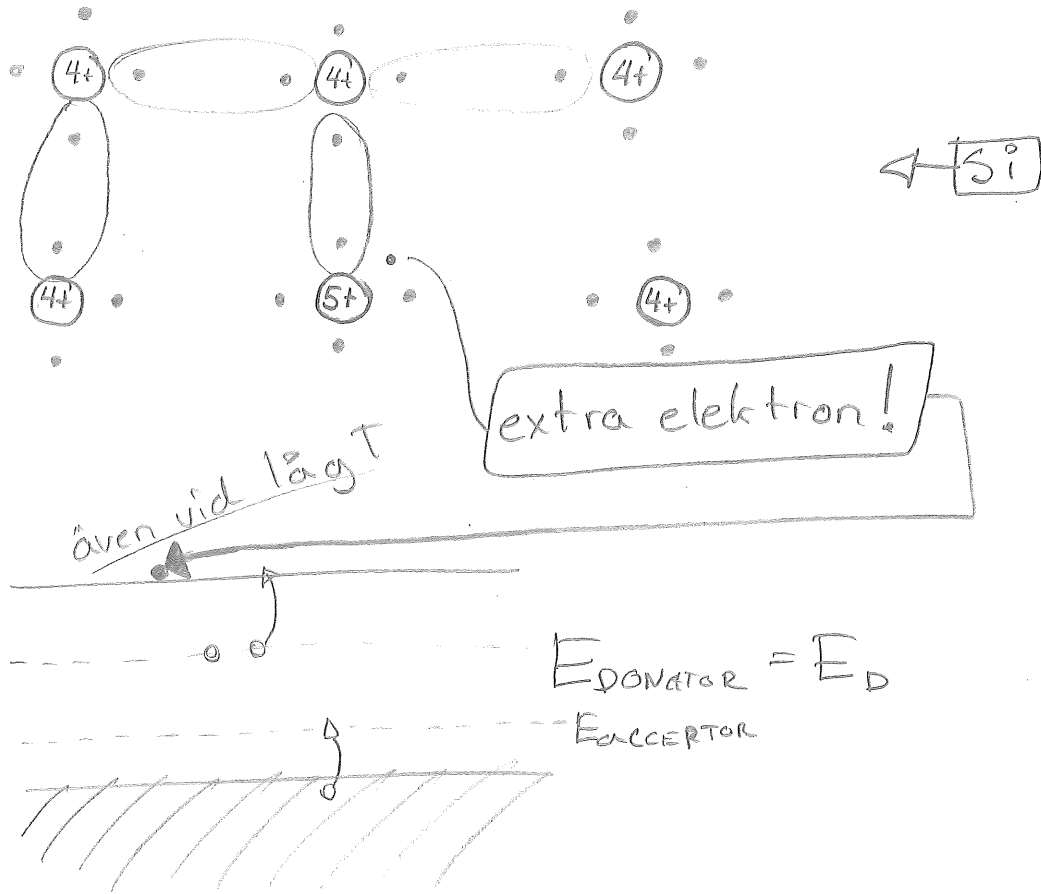 4+ 4+ 4+
Si
4+ 5+ 4+
extra elektron!
även vid låg T
E DONATOR = E D
E ACCEPTOR